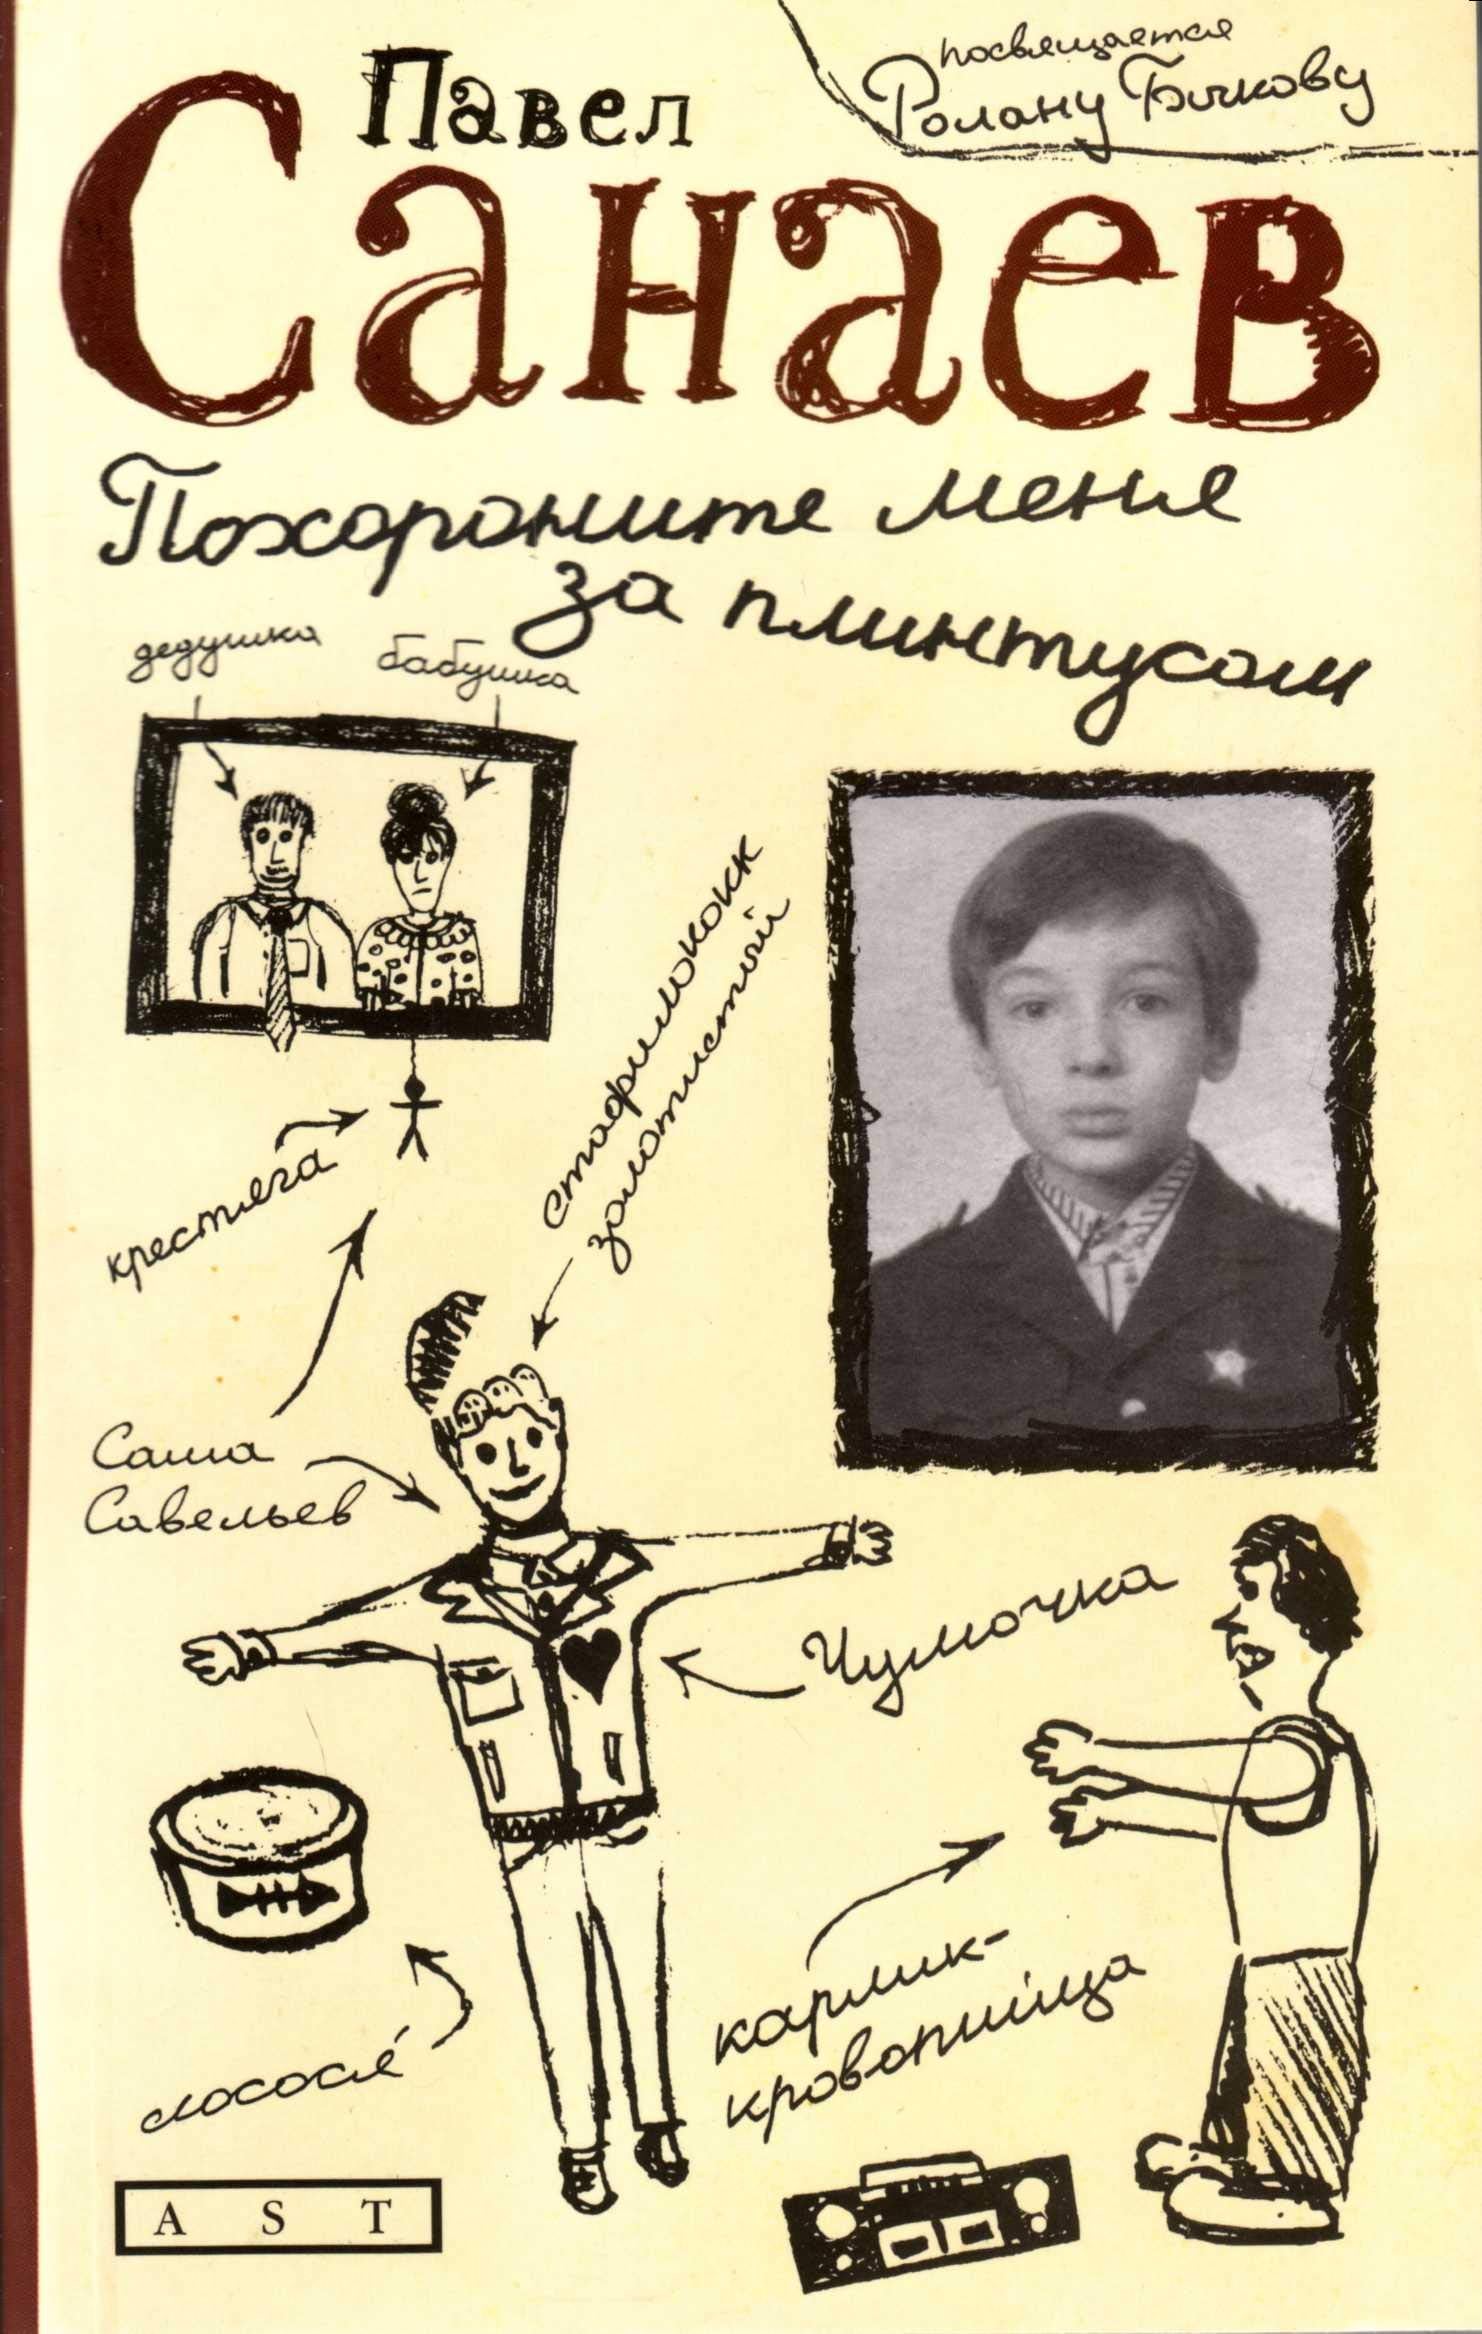 посвящается
Ролану Быкову
Павел
Санаев
Похороните меня
за плинтусом
дедушка
бабушка
стафилококк
золотистый
крестяга
Саша
Савельев
Чумочка
карлик-
кровопийца
лосося
AST